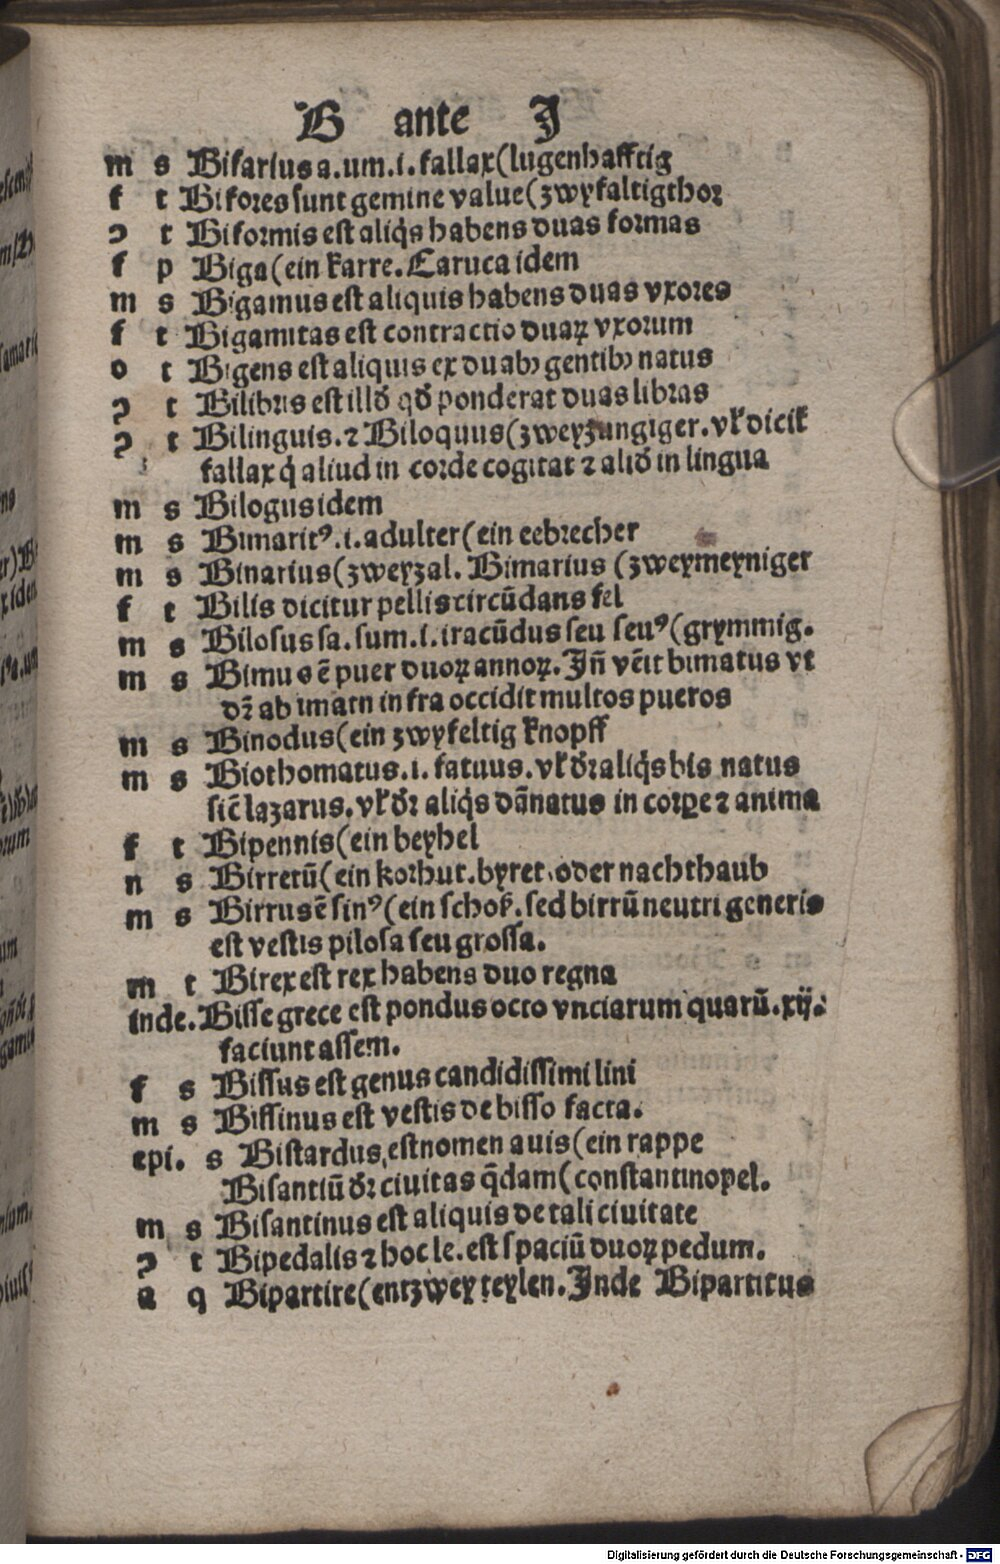 B ante J
m s Bifarius a. um. i. fallax (lugenhafftig
f t Bifores sunt gemine value (zwyfaltigthor
ɔ t Biformis est aliq̃s habens duas formas
f p Biga (ein karre. Caruca idem
m s Bigamus est aliquis habens duas vxores
f t Bigamitas est contractio duaꝝ vxorum
o t Bigens est aliquis ex duabꝫ gentibꝫ natus
ɔ t Bilibris est illď qď ponderat duas libras
ɔ t Bilinguis. ⁊ Biloquus (zweyzungiger. vł dicit᷑
fallax q̇ aliud in corde cogitat ⁊ aliď in lingua
m s Bilogus idem
m s Bimaritꝰ. i. adulter (ein eebrecher
m s Binarius (zweyzal. Bimarius (zweymeyniger
f t Bilis dicitur pellis circūdans fel
m s Bilosus sa. sum. i. iracūdus seu seuꝰ (grymmig.
m s Bimus ē puer duoꝝ annoꝝ. Jn̄ vēit bimatus vt
dr̄ ab imatu infra occidit multos pueros
m s Binodus (ein zwyfeltig knopff
m s Biothomatus. i. fatuus. vł dr̄ aliq̃s bis natus
sic̄ lazarus. vł dr̄ aliq̃s dānatus in corꝑe ⁊ anima
f t Bipennis (ein beyhel
n s Birretū (ein korhut. byret. oder nachthaub
m s Birrus ē sinꝰ (ein schoß. sed birrū neutri generis
est vestis pilosa seu grossa.
m t Birex est rex habens duo regna
inde. Bisse grece est pondus octo vnciarum quarū. xij.
faciunt assem.
f s Bissus est genus candidissimi lini
m s Bissinus est vestis de bisso facta.
epi. s Bistardus, est nomen auis (ein rappe
Bisantiū dr̄ ciuitas q̄dam (constantinopel.
m s Bisantinus est aliquis de tali ciuitate
ɔ t Bipedalis ⁊ hoc le. est spaciū duoꝝ pedum.
a q Bipartire (entzwey teylen. Jnde Bipartitus
Digitalisierung gefördert durch die Deutsche Forschungsgemeinschaft - DFG